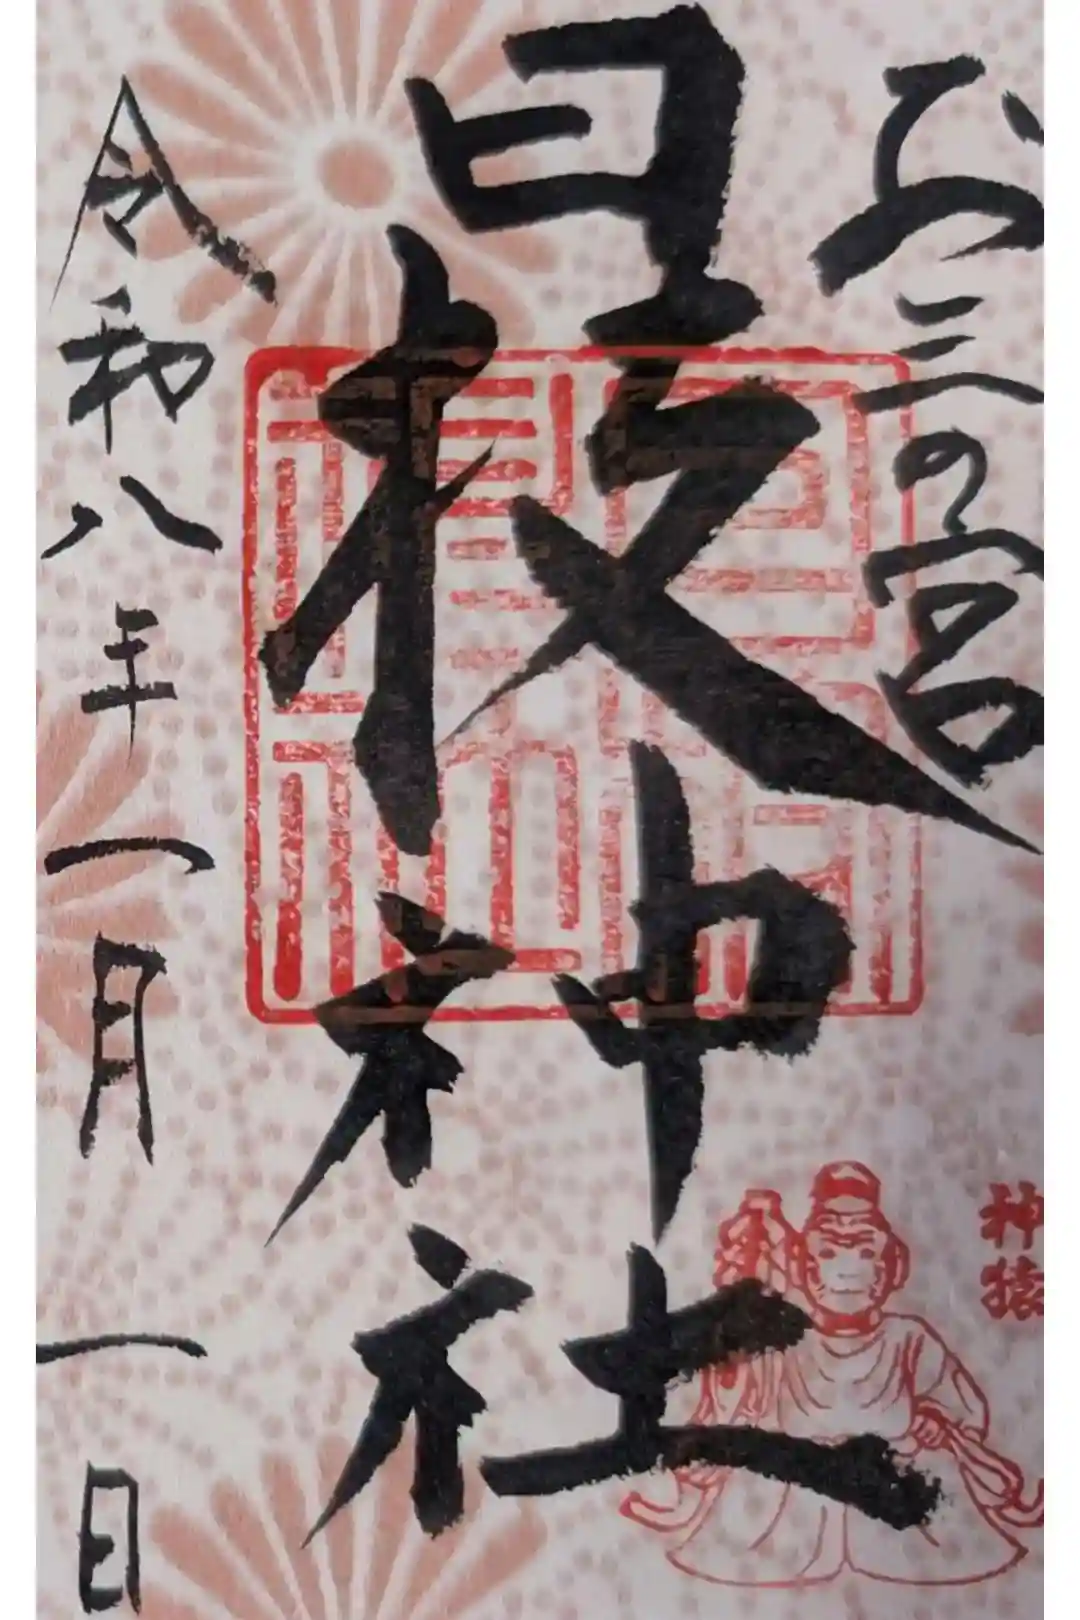 お三の宮
日枝神社
令和八年一月一日
神猿